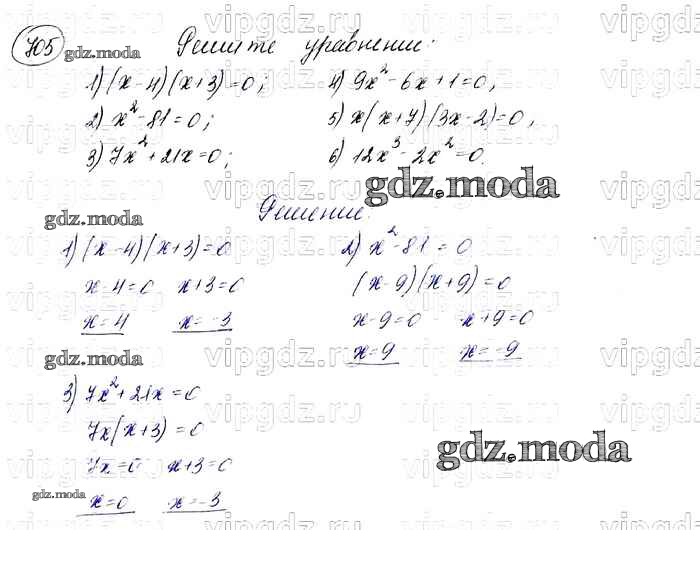 705 gdz.moda Решите уравнение:
1) (x-4)(x+3)=0; 4) 9x²-6x+1=0,
2) x²-81=0; 5) x(x+7)(3x-2)=0,
3) 7x²+21x=0; 6) 12x³-2x²=0.
gdz.moda
Решение.
gdz.moda
1) (x-4)(x+3)=0 2) x²-81=0
x-4=0 x+3=0 (x-9)(x+9)=0
x=4 x=-3 x-9=0 x+9=0
gdz.moda x=9 x=-9
3) 7x²+21x=0
7x(x+3)=0
gdz.moda
7x=0 x+3=0
gdz.moda x=0 x=-3
vipgdz.ru